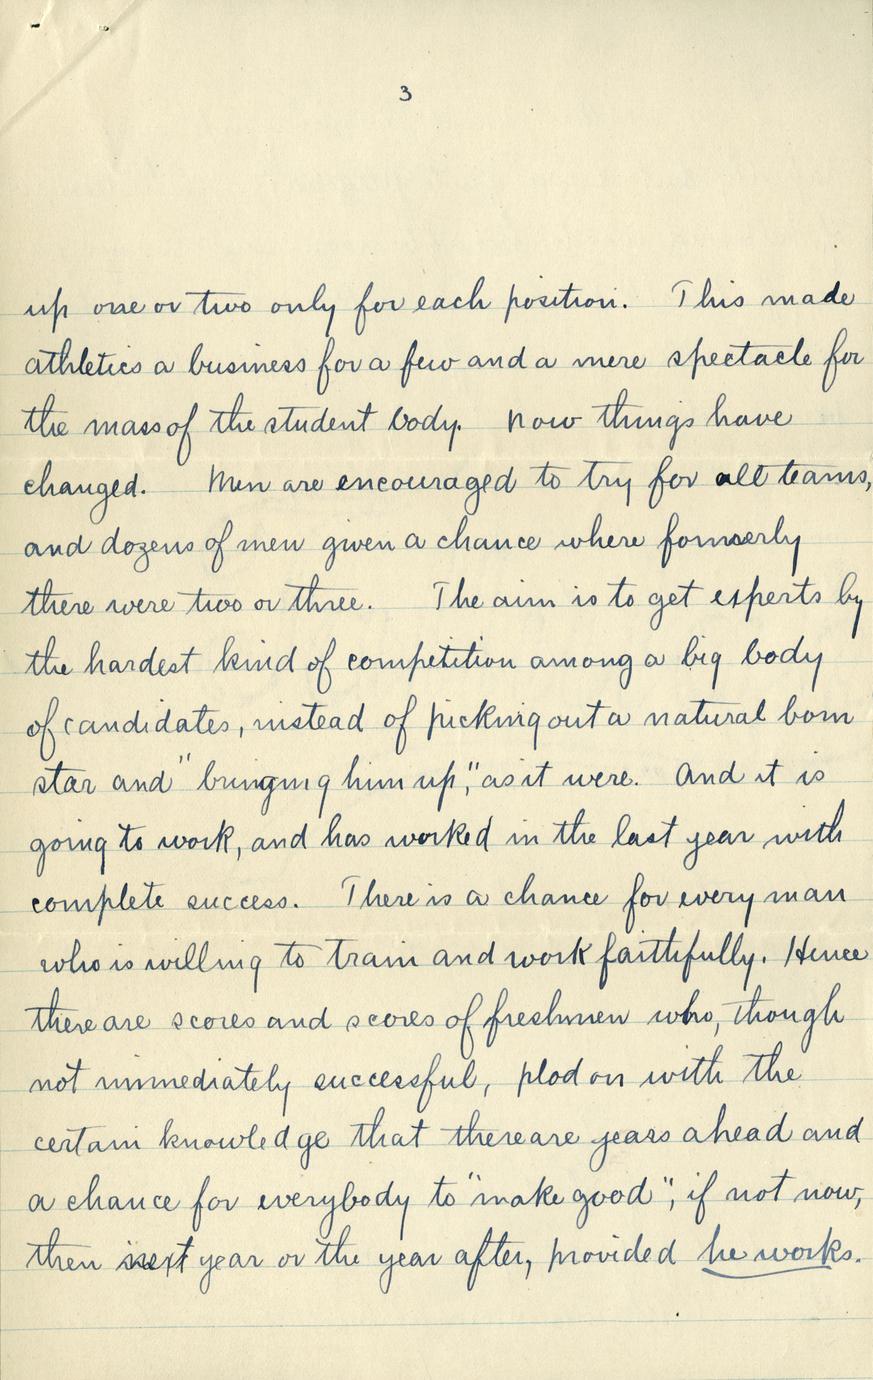 3
up one or two only for each position. This made
athletics a business for a few and a mere spectacle for
the mass of the student body. Now things have
changed. Men are encouraged to try for all teams,
and dozens of men given a chance where formerly
there were two or three. The aim is to get experts by
the hardest kind of competition among a big body
of candidates, instead of picking out a natural born
star and "bringing him up," as it were. And it is
going to work, and has worked in the last year with
complete success. There is a chance for every man
who is willing to train and work faithfully. Hence
there are scores and scores of freshmen who, though
not immediately successful, plod on with the
certain knowledge that there are years ahead and
a chance for everybody to "make good", if not now,
then next year or the year after, provided he works.